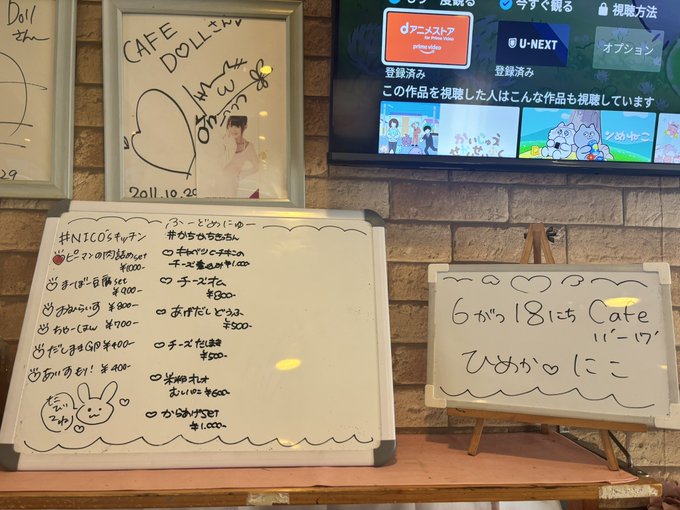 Doll
さん
29
CAFE
DOLLさん
2011.10.29
もう一度観る
今すぐ観る
視聴方法
dアニメストア
for Prime Video
prime video
U-NEXT
オプション
登録済み
登録済み
この作品を視聴した人はこんな作品も視聴しています
ふーどめにゅー
#NICO'sキッチン
ピーマンの肉詰めset
¥1000-
まーぼー豆腐set
¥900-
おむらいす ¥800-
ちゃーはん ¥700-
だしまき ¥400-
あいすもり! ¥400-
キャベツとチキンの
チーズ煮込み¥1.000-
チーズオム
¥800-
あげだしどうふ
¥500-
チーズだしまき
¥500-
¥600-
からあげSET
¥1.000-
6がつ18にち Cafe
ひめか♡にこ